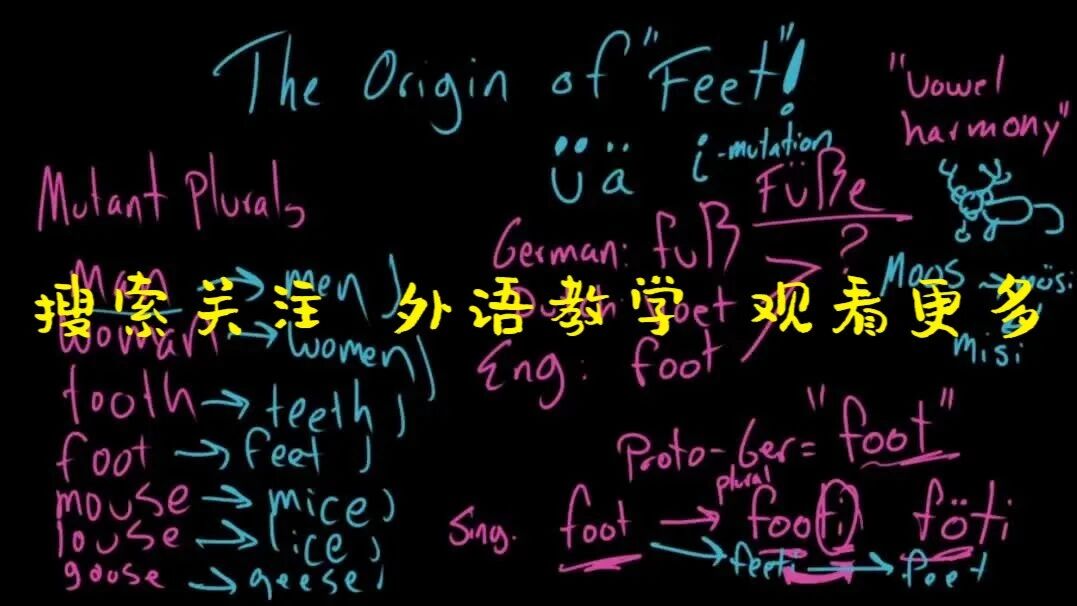 The Origin of "Feet"!
"vowel
harmony"
ü ä
i-mutation
Mutant Plurals
man → men
woman → women
tooth → teeth
foot → feet
mouse → mice
louse → lice
goose → geese
German: fuß
Füße
?
Dutch foet
Eng: foot
Moos → mösi
misi
搜索关注 外语教学 观看更多
Proto-Ger = "foot"
plural
Sing. foot → footi föti
feeti → feet